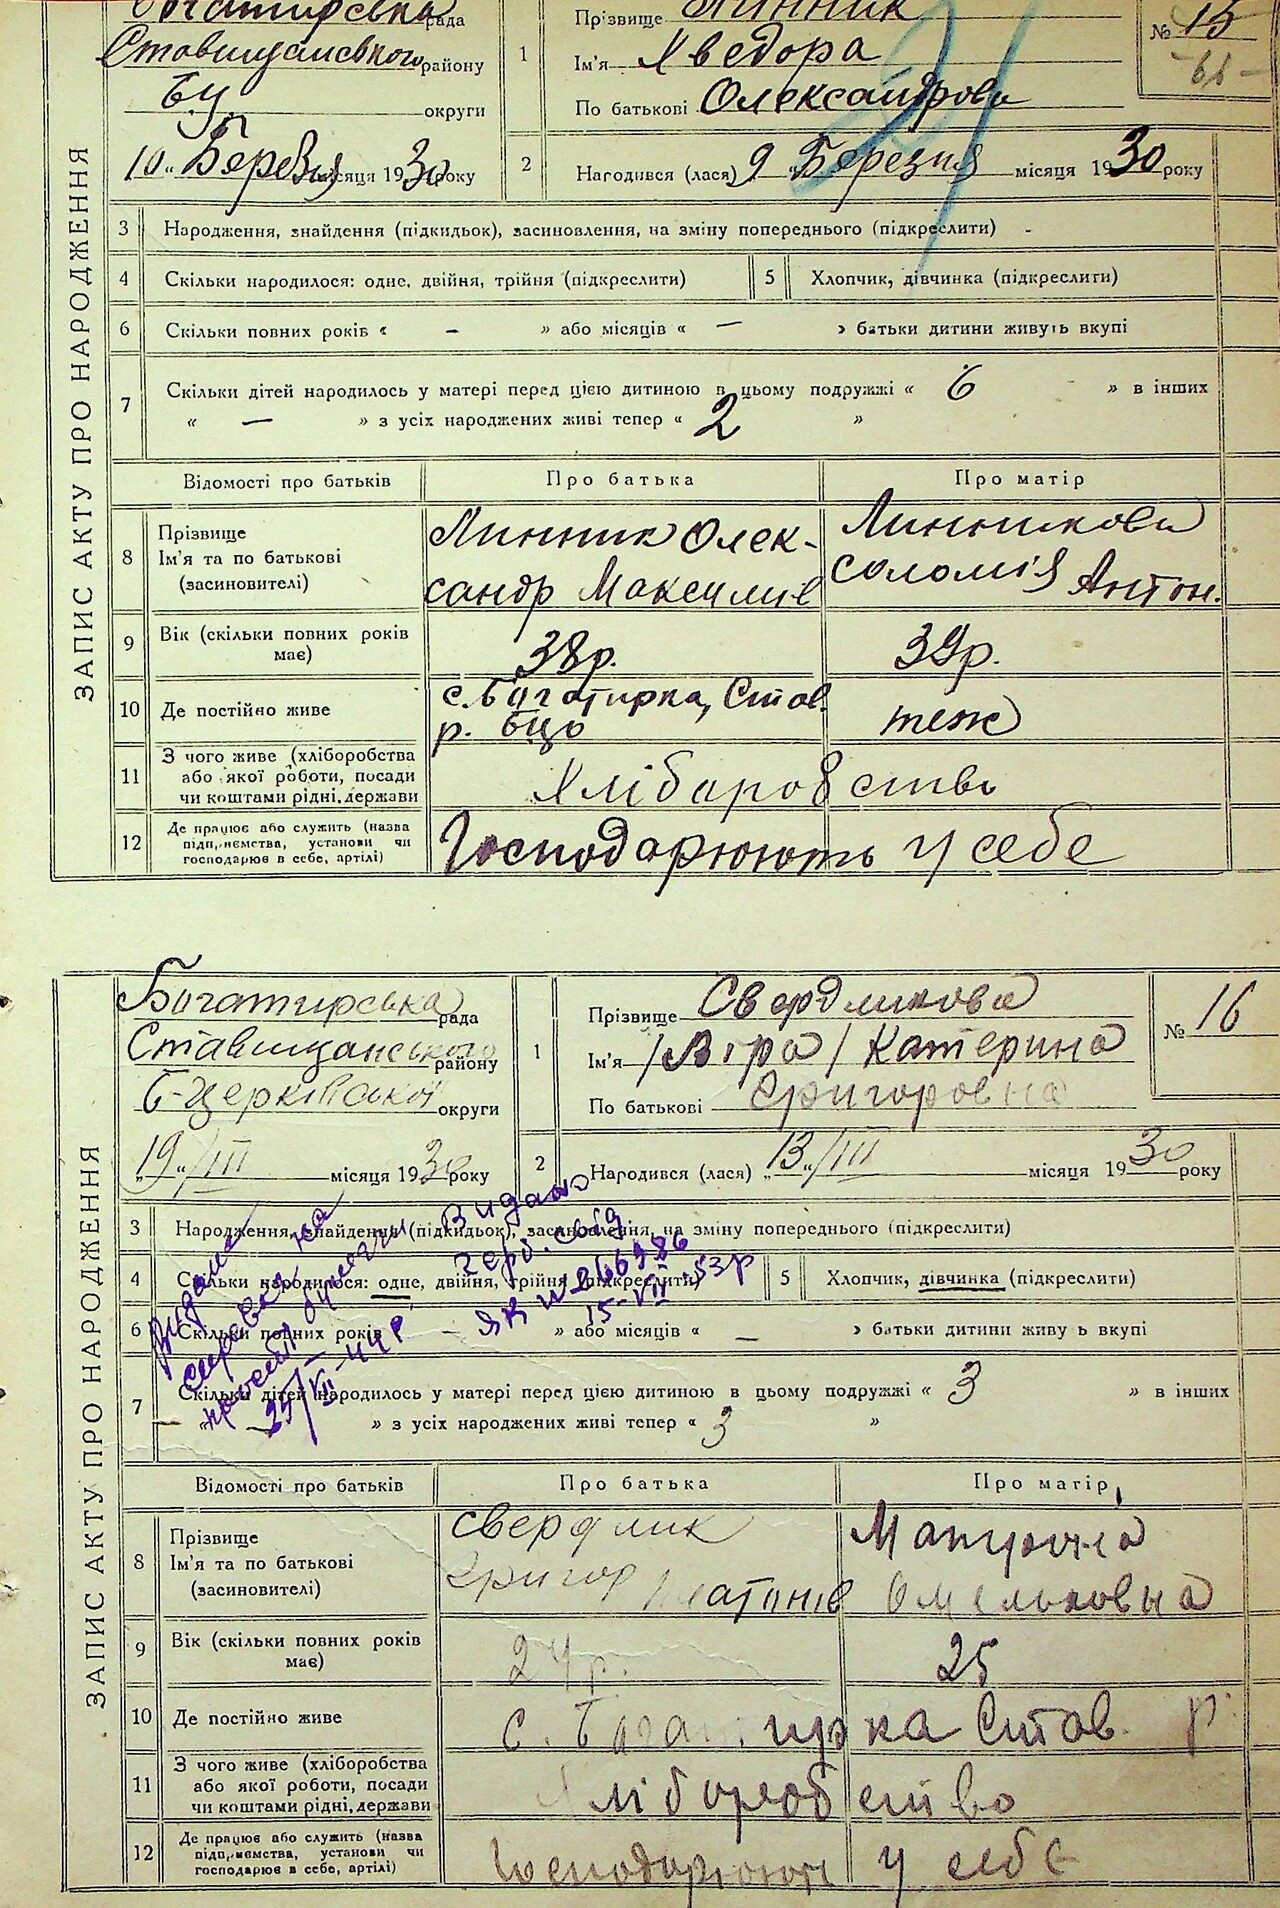 Богатирська рада
Ставищанського району
БЦ округи
"10" Березня місяця 1930 року
1
Прізвище Линник
Ім'я Хведора
По батькові Олександрова
№ 15
2
Народився (лася) 9 "Березня місяця 1930 року
ЗАПИС АКТУ ПРО НАРОДЖЕННЯ
3 Народження, знайдення (підкидьок), засиновлення, на зміну попереднього (підкреслити) -
4 Скільки народилося: одне, двійня, трійня (підкреслити)
5 Хлопчик, дівчинка (підкреслити)
6 Скільки повних років « – » або місяців « — » батьки дитини живуть вкупі
7 Скільки дітей народилось у матері перед цією дитиною в цьому подружжі « 6 » в інших
« — » з усіх народжених живі тепер « 2 »
Відомості про батьків
Про батька
Про матір
8 Прізвище
Ім'я та по батькові
(засиновителі)
Линник Олек-
сандр Максимів
Линникова
Соломія Антон.
9 Вік (скільки повних років
має)
38р.
39р.
10 Де постійно живе
с. Богатирка, Став.
р. БЦО
теж
11 З чого живе (хліборобства
або якої роботи, посади
чи коштами рідні, держави
Хліборобство
12 Де працює або служить (назва
підприємства, установи чи
господарює в себе, артілі)
Господарюють у себе
Богатирська рада
Ставищанського району
Б-Церківської округи
"19"/III місяця 1930 року
1
Прізвище Свердликова
Ім'я /Віра/ Катерина
По батькові Григоровна
№ 16
2
Народився (лася) "13"/III місяця 1930 року
ЗАПИС АКТУ ПРО НАРОДЖЕННЯ
3 Народження, знайдення (підкидьок), засиновлення, на зміну попереднього (підкреслити)
4 Скільки народилося: одне, двійня, трійня (підкреслити)
5 Хлопчик, дівчинка (підкреслити)
6 Скільки повних років – » або місяців « — » батьки дитини живу ь вкупі
Видано
справка на
25/VII-44 р
Видано
герб. свід
ЯК № 266986
15-VII 53р
7 Скільки дітей народилось у матері перед цією дитиною в цьому подружжі « 3 » в інших
« — » з усіх народжених живі тепер « 3 »
Відомості про батьків
Про батька
Про матір
8 Прізвище
Ім'я та по батькові
(засиновителі)
Свердлик
Григор Платонів
Мотрона
Омельковна
9 Вік (скільки повних років
має)
24р.
25
10 Де постійно живе
с. Богатирка Став. р.
11 З чого живе (хліборобства
або якої роботи, посади
чи коштами рідні, держави
Хліборобство
12 Де працює або служить (назва
підприємства, установи чи
господарює в себе, артілі)
Господарюють у себе